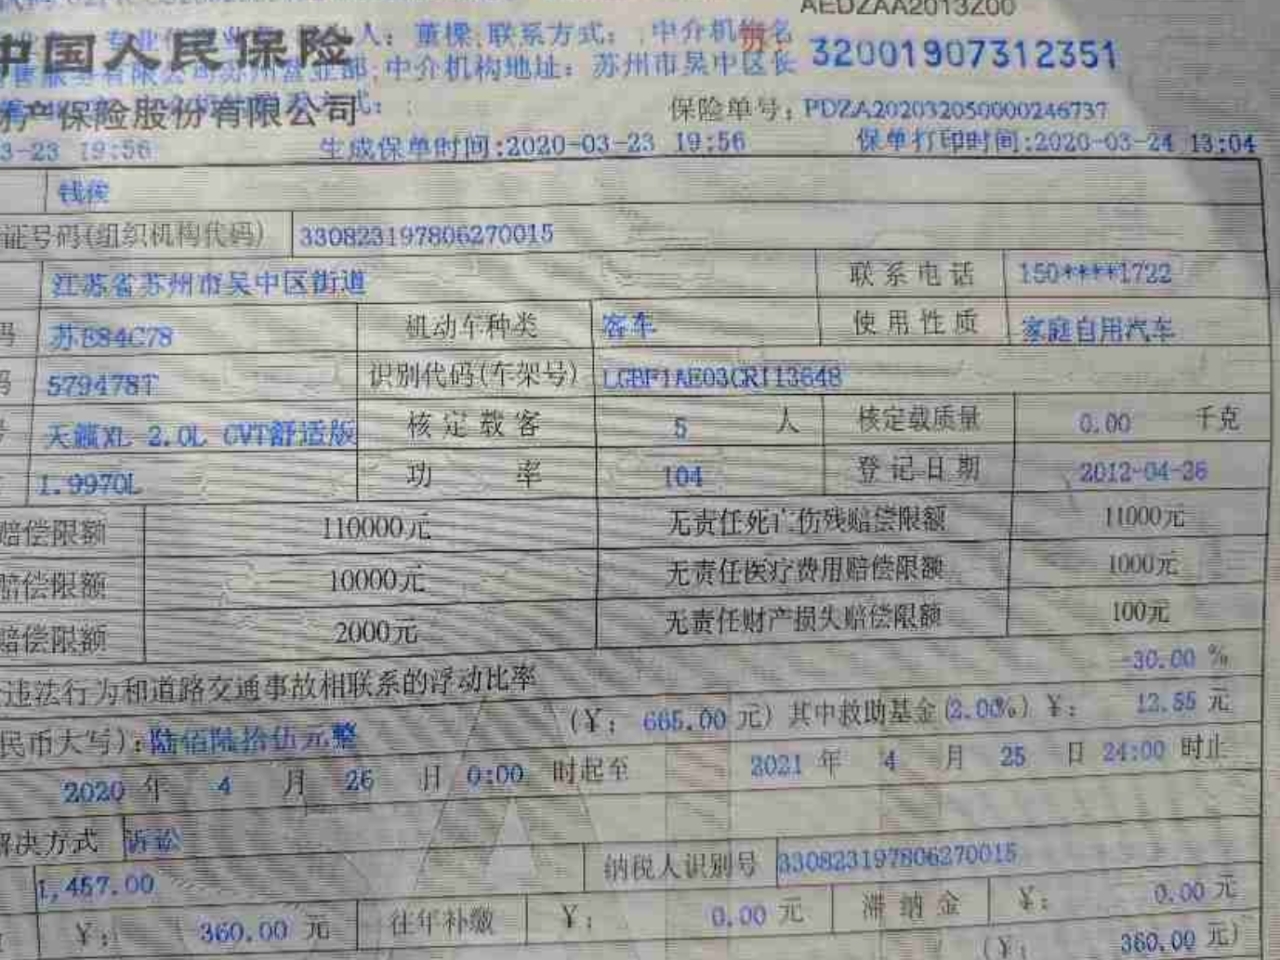 AEDZAA2013Z00
人：董樑,联系方式：,中介机构名
中国人民保险
32001907312351
中介机构地址：苏州市吴中区长
财产保险股份有限公司
保险单号：PDZA202032050000246737
3-23 19:56 生成保单时间:2020-03-23 19:56 保单打印时间:2020-03-24 13:04
钱俊
证号码(组织机构代码) 330823197806270015
江苏省苏州市吴中区街道 联系电话 150****1722
码 苏E84C78 机动车种类 客车 使用性质 家庭自用汽车
码 579478T 识别代码(车架号) LGBF1AE03CR113648
号 天籁XL 2.0L CVT舒适版 核定载客 5 人 核定载质量 0.00 千克
1.9970L 功率 104 登记日期 2012-04-26
赔偿限额 110000元 无责任死亡伤残赔偿限额 11000元
赔偿限额 10000元 无责任医疗费用赔偿限额 1000元
赔偿限额 2000元 无责任财产损失赔偿限额 100元
违法行为和道路交通事故相联系的浮动比率 -30.00 %
民币大写):陆佰陆拾伍元整 (￥: 665.00 元) 其中救助基金(2.00%) ￥: 12.55 元
2020 年 4 月 26 日 0:00 时起至 2021 年 4 月 25 日 24:00 时止
解决方式 诉讼
1,457.00 纳税人识别号 330823197806270015
￥: 360.00 元 往年补缴 ￥: 0.00 元 滞纳金 ￥: 0.00 元
(￥: 360.00 元)